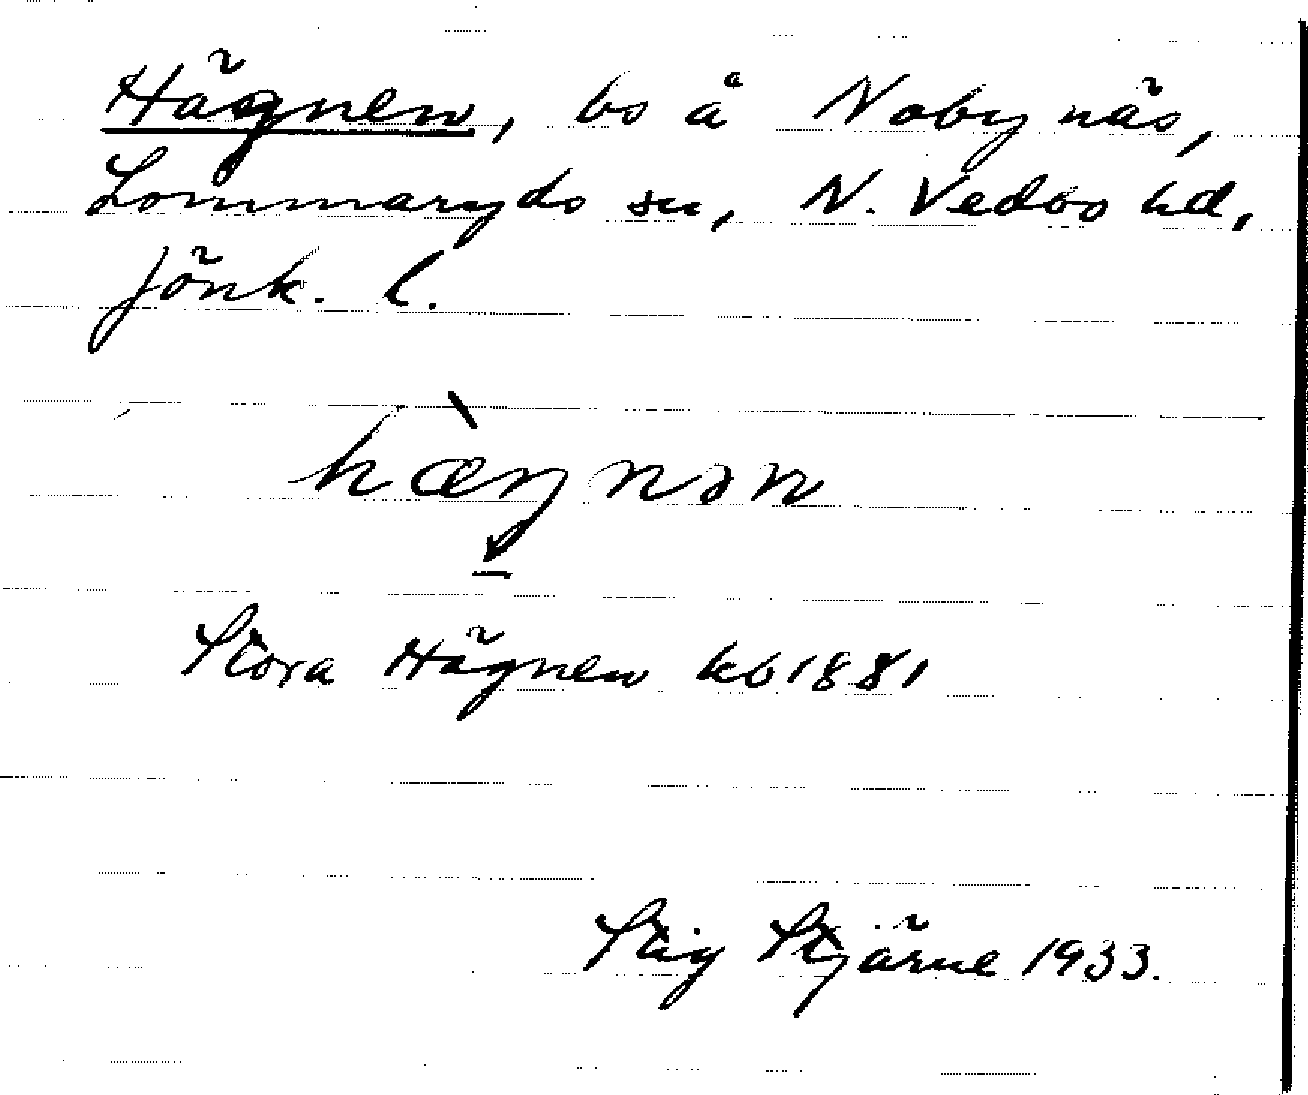 Hägnen, bs å Nobynäs,
Lommaryds sn, N. Vedbo hd,
Jönk. l.
hæŋnən
Stora Hägnen kb 1881
Stig Stjärne 1933.